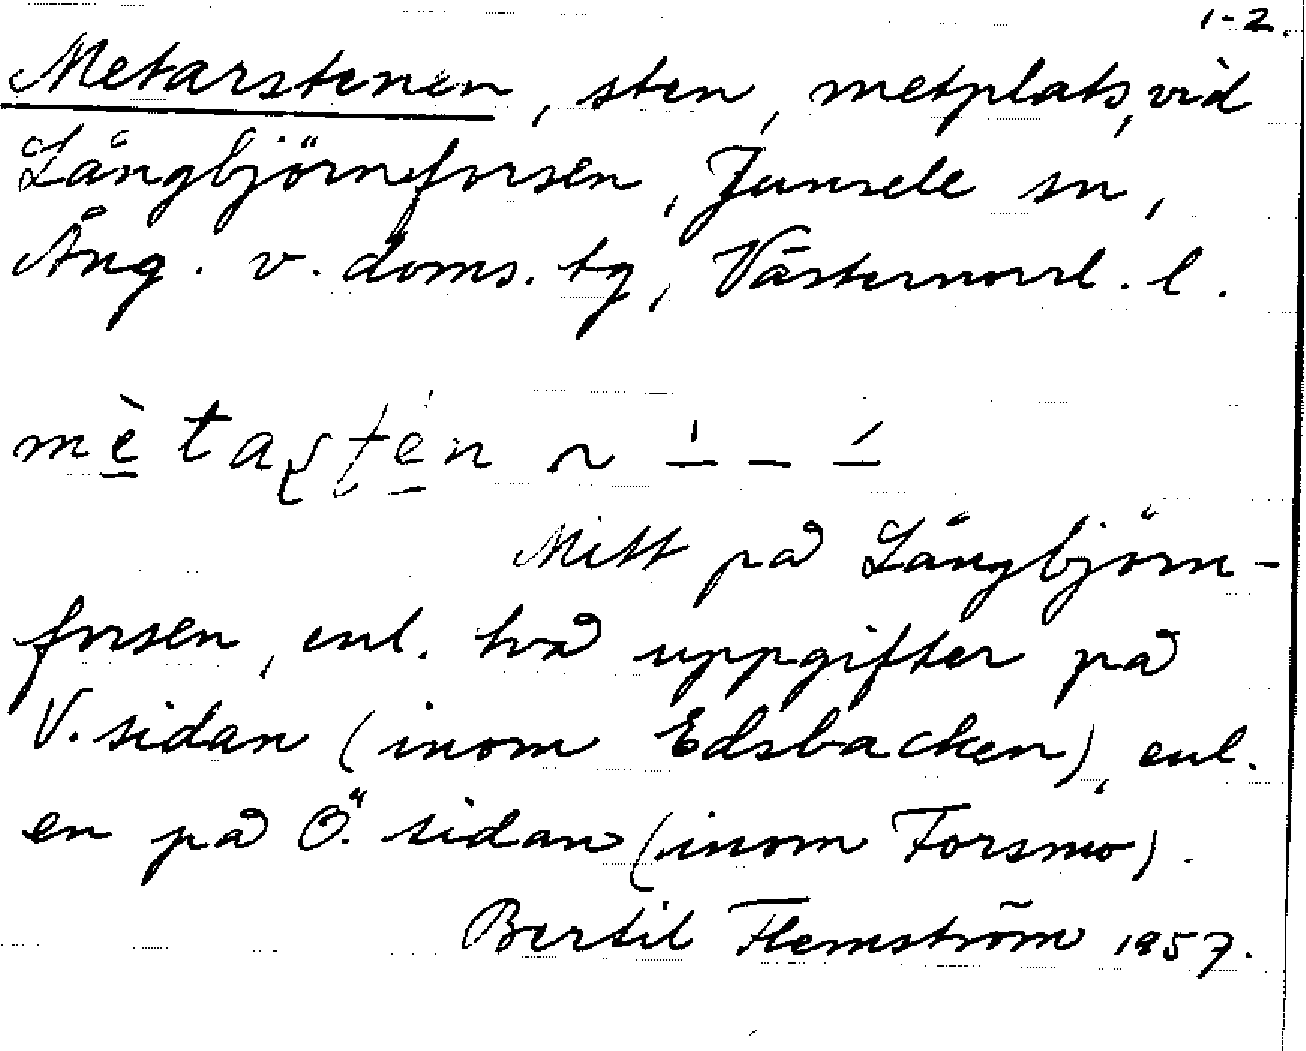 1-2.
Metarstenen, sten, metplats, vid
Långbjörnforsen, Junsele sn,
Ång. v. doms. tg, Västernorrl. l.
Mitt på Långbjörn-
forsen, enl. två uppgifter på
V. sidan (inom Edsbacken), enl.
en på Ö. sidan (inom Forsmo).
Bertil Flemström 1957.